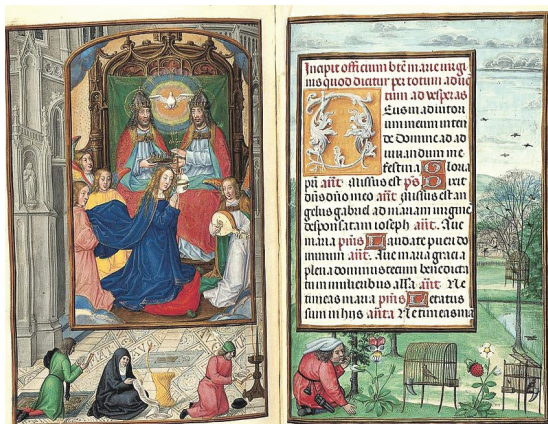 Incipit officium bte marie virgi
nis quod dicitur per totum adue
tum ad vesperas
Deus in adiutor
ium meum inten
de Domine ad ad
iuuandum me
festina Gloria
pri añt Missus est ps Dixit
dñs dño meo añt Missus est an
gelus gabriel ad mariam virgine
desponsatam ioseph añt. Aue
maria p̄mis Laudate pueri do
minum añt. Aue maria gracia
plena dominus tecum benedicta
tu in mulieribus alla añt Ne
timeas maria p̄mis Letatus
sum in hijs añt Ne timeas ma